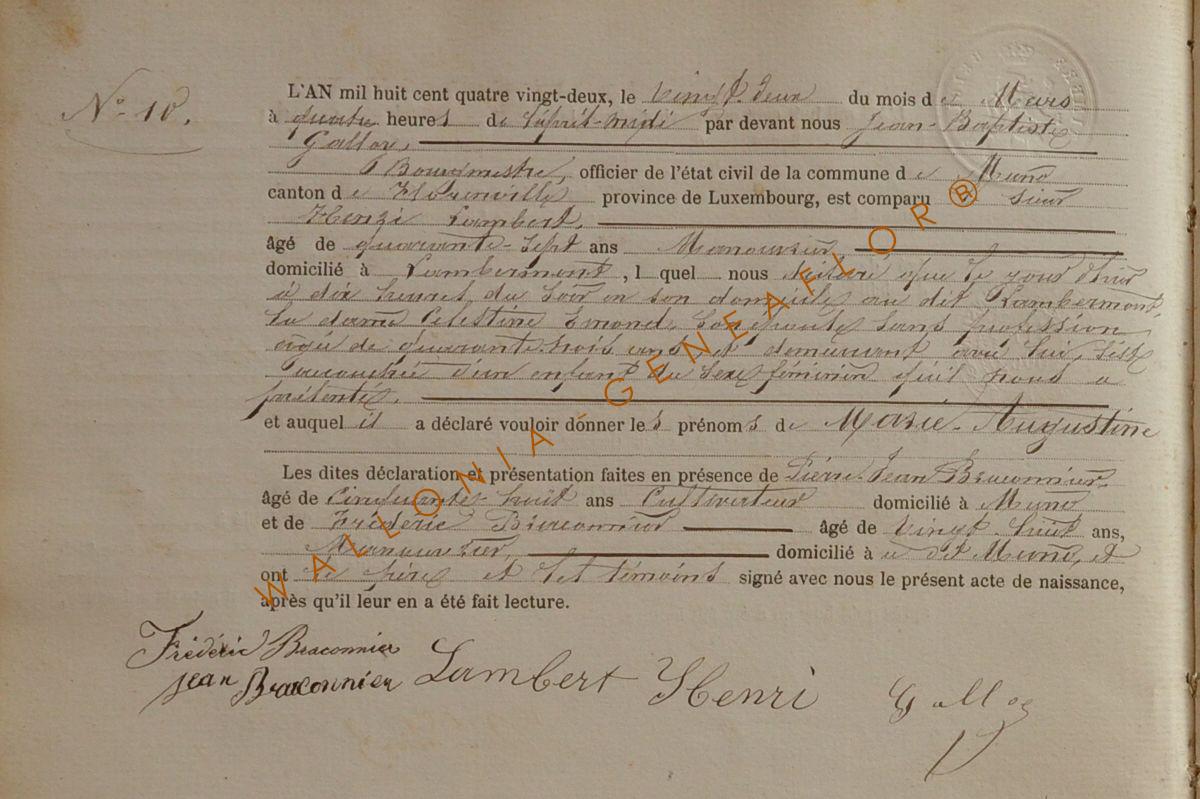 N° 10.
L'AN mil huit cent quatre vingt-deux, le vingt deux du mois de Mars
à quatre heures de l'après-midi par devant nous Jean-Baptiste
Galloy,
Bourgmestre, officier de l'état civil de la commune de Muno
canton de Florenville province de Luxembourg, est comparu sieur
Henri Lambert,
âgé de quarante-sept ans Manouvrier,
domicilié à Lambermont, l quel nous déclare que le jour d'hier
à dix heures du soir en son domicile au dit Lambermont,
la dame Célestine Emond, son épouse sans profession
âgée de quarante trois ans et demeurant avec lui, s'est
accouchée d'un enfant du sexe féminin qu'il nous a
présenté,
et auquel il a déclaré vouloir donner les prénoms de Marie-Augustine
Les dites déclaration et présentation faites en présence de Pierre-Jean Braconnier,
âgé de cinquante-huit ans Cultivateur domicilié à Muno
et de Frédéric Braconnier âgé de vingt huit ans,
Manouvrier, domicilié à dit Muno, et
ont le père et les témoins signé avec nous le présent acte de naissance,
après qu'il leur en a été fait lecture.
Frédéric Braconnier
jean Braconnier Lambert Henri Galloy
WALLONIA-GENEAFLOR®